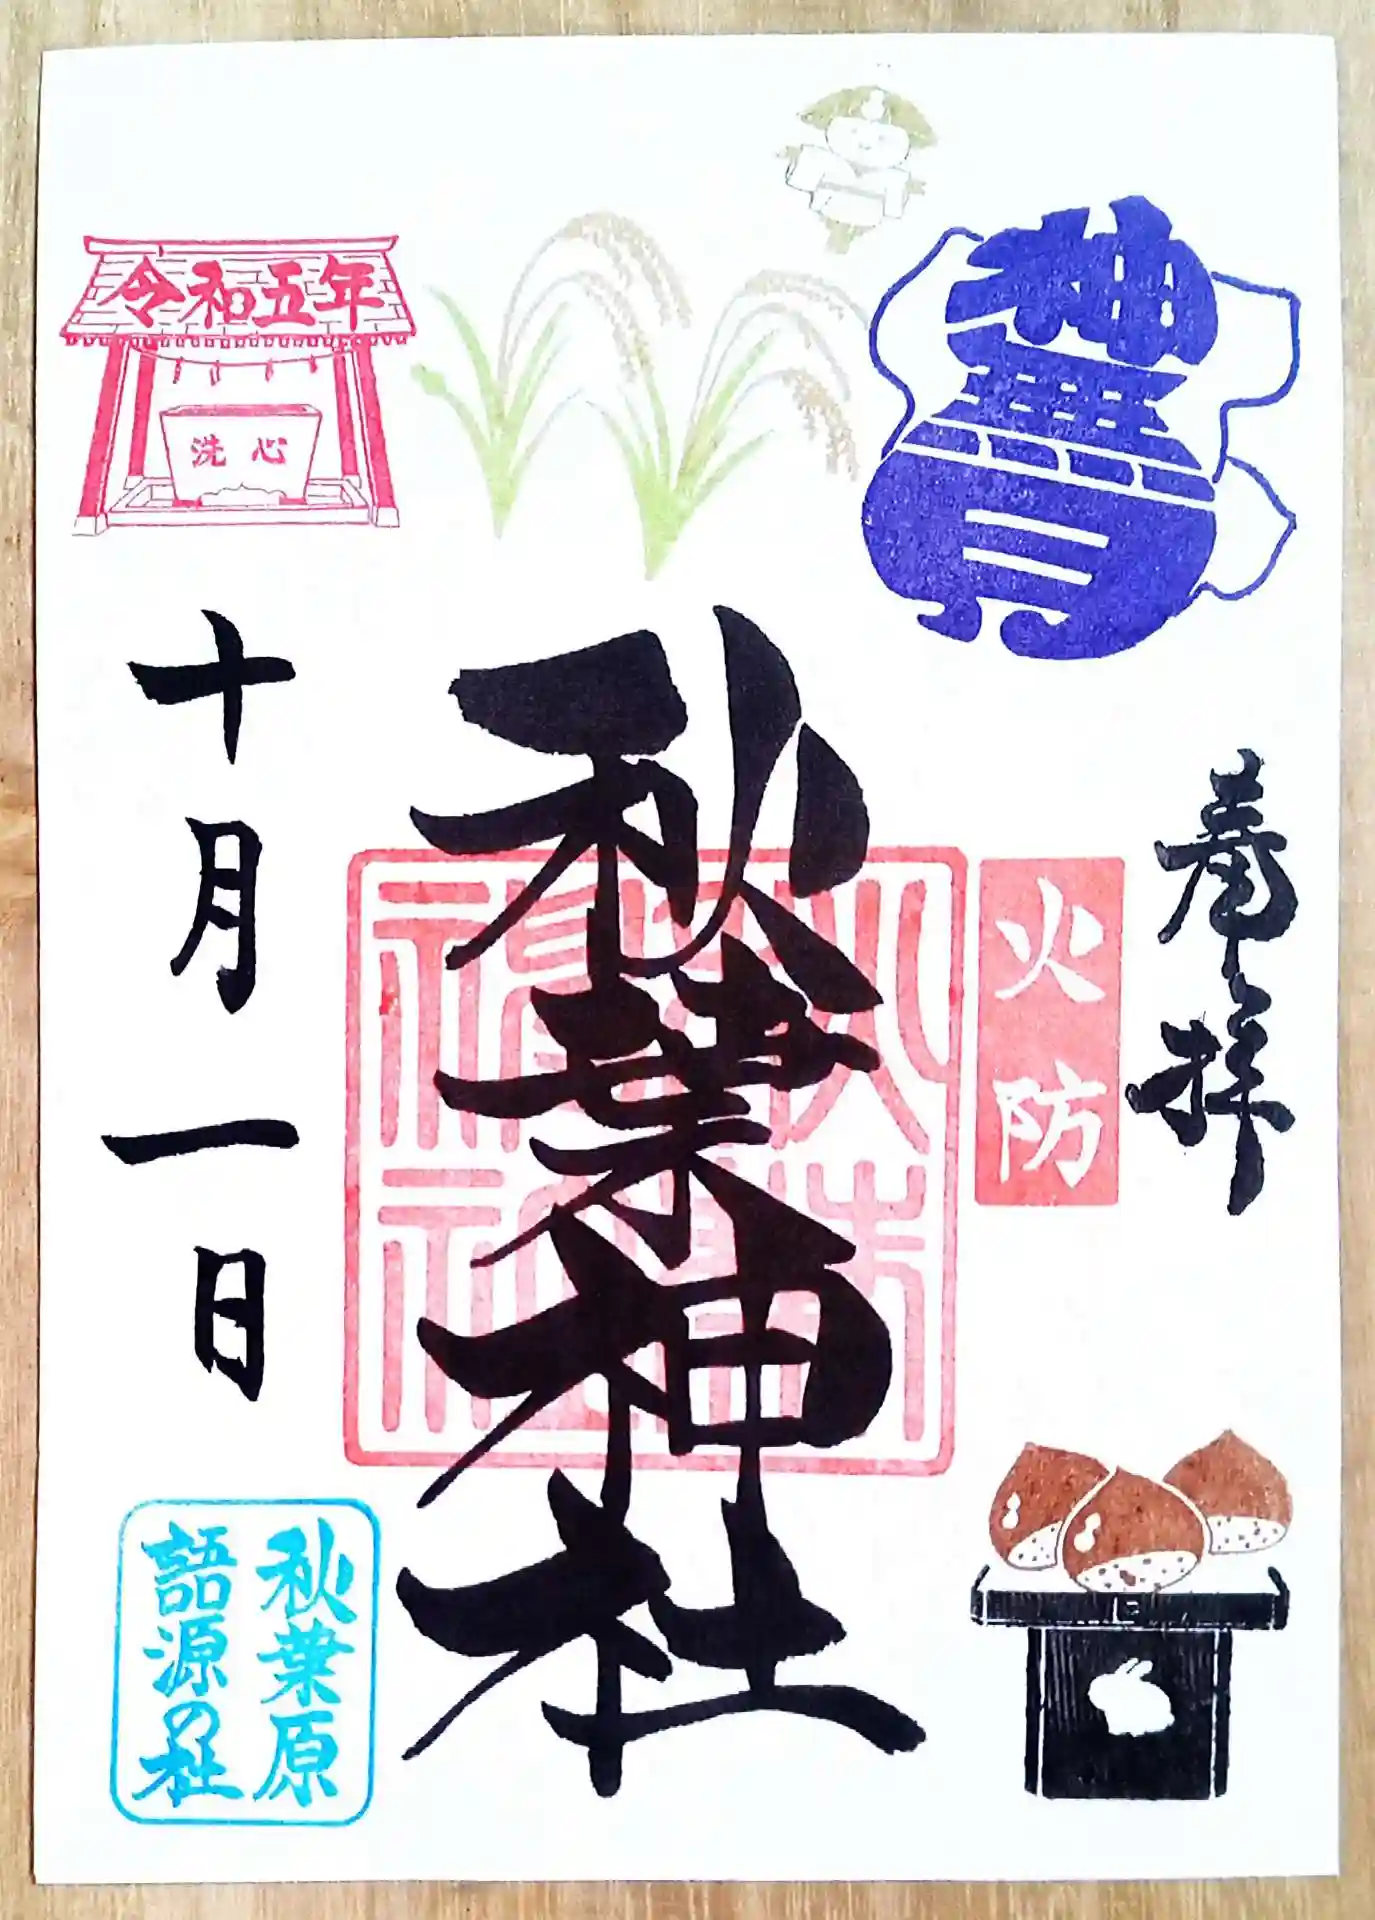 神無月
奉拝
火防
秋葉神社
令和五年
洗心
十月一日
秋葉原
語源の社